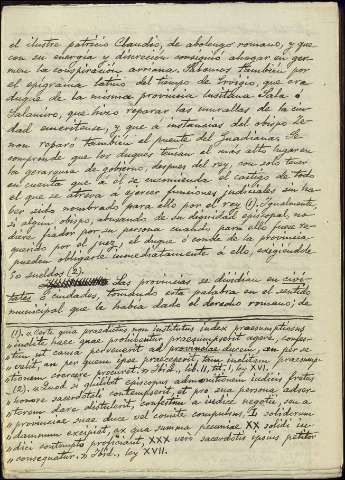 el ilustre patricio Claudio, de abolengo romano, y que
con su energía y discreción consiguió ahogar en ger-
men la conspiración arriana. Sabemos también por
el epigrama latino del tiempo de Ervigio, que era
duque de la misma provincia lusitana Sala ó
Salamiro, que hizo reparar las murallas de la ciu-
dad emeritense, y que a instancias del obispo Ze-
non reparó también el puente del Guadiana. Se
comprende que los duques tenían el más alto lugar en
la gerarquia de gobierno, después del rey, con solo tener
en cuenta que a él se encomienda el castigo de todo
el que se atreva a ejercer funciones judiciales sin ha-
ber sido nombrado para ello por el rey (1). Igualmente,
si algun obispo, abusando de su dignidad episcopal, no
diere fiador por su persona cuando para ello fuese re-
querido por el juez, el duque ó conde de la provincia
pueden obligarle inmediatamente á ello, exigiéndole
50 sueldos (2).
Las provincias se dividían en civi-
tates ó ciudades, tomando esta palabra en el sentido
municipal que la había dado el derecho romano; de
(1). « Certe qui praedictus non institutus iudex praesumptiosus
» inedite haec quae prohibentur praesumpserit agere, confes-
» tim ut causa pervenerit ad provinciae ducem, aut per se
» velit, an per quem ipse praeceperit, tam inlicitam praesump-
» tionem coercere procuret. » Ibid., lib. II, tit. I, ley XVI.
(2). « Quod si quilibet episcopus admonitionem iudicis fretus
» honore sacerdotali contempserit et pro sua persona adser-
» torem dare distulerit, confestim a iudice negotii, seu a
» provinciae suae duce vel comite compulsus, L solidorum
» damnum excipiat, ex qua summa pecuniae XX solidi iu-
» dici contempto proficiant, XXX vero sacerdotis ipsius petitor
» consequatur. » Ibid., ley XVII.